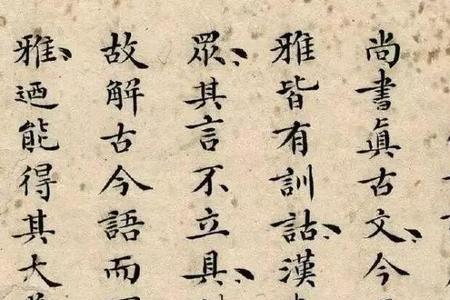 尚書真古文、今
雅皆有訓詁、漢
眾、其言不立具、
故解古今語而
雅、迺能得其大